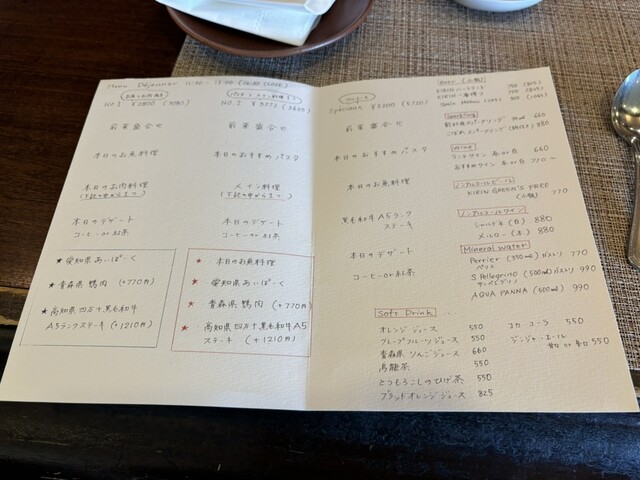 Menu Déjeuner 11:30 -
お魚とお肉料理
No.1 ¥2800 (3080)
前菜盛合せ
本日のお魚料理
本日のお肉料理
(下記の中から1つ)
本日のデザート
コーヒーor紅茶
★ 愛知県あいぽーく
★ 青森県 鴨肉 (+770円)
★ 高知県四万十黒毛和牛
A5ランクステーキ (+1210円)
No.2
前菜盛合せ
本日のおすすめパスタ
メイン料理
(下記の中から1つ)
本日のデザート
コーヒーor紅茶
★ 本日のお魚料理
★ 愛知県あいぽーく
★ 青森県 鴨肉 (+770円)
★ 高知県 四万十黒毛和牛A5
ステーキ (+1210円)
Spéciaux ¥5200 (5720)
前菜盛合せ
本日のおすすめパスタ
本日のお魚料理
黒毛和牛A5ランク
ステーキ
本日のデザート
コーヒーor紅茶
Beer (小瓶)
Sparkling
660
880
Wine
ランチワイン 赤or白 660
おすすめワイン 赤or白 770~
ノンアルコールビール
KIRIN GREEN'S FREE
(小瓶) 770
ノンアルコールワイン
シャルドネ (白) 880
メルロー (赤) 880
Mineral water
Perrier (330ml) ガス入り 770
ペリエ
S.Pellegrino (500ml) ガス入り 990
サンペレグリノ
AQUA PANNA (500ml) 990
Soft Drink
オレンジジュース 550
グレープフルーツジュース 550
青森県りんごジュース 660
烏龍茶 550
とうもろこしのひげ茶 550
ブラッドオレンジジュース 825
コカ・コーラ 550
ジンジャーエール
甘口 or 辛口 550